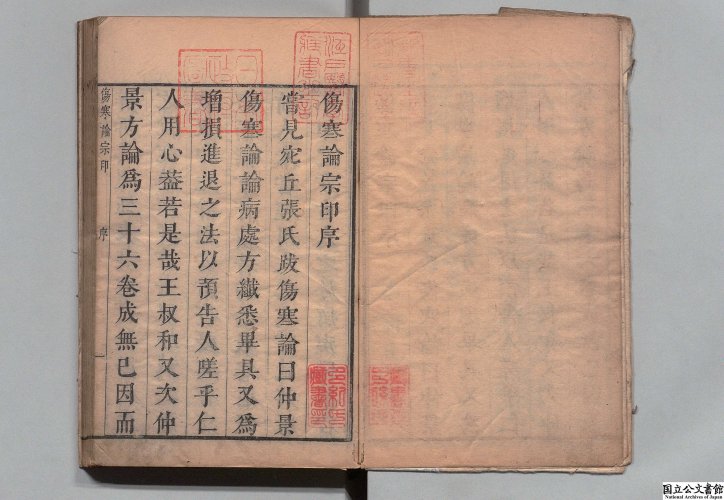 傷寒論宗印序
嘗見宛丘張氏跋傷寒論曰仲景
傷寒論論病處方纎悉畢具又爲
增損進退之法以預告人嗟乎仁
人用心葢若是哉王叔和又次仲
景方論爲三十六卷成無已因而
傷寒論宗印
序
国立公文書館
National Archives of Japan